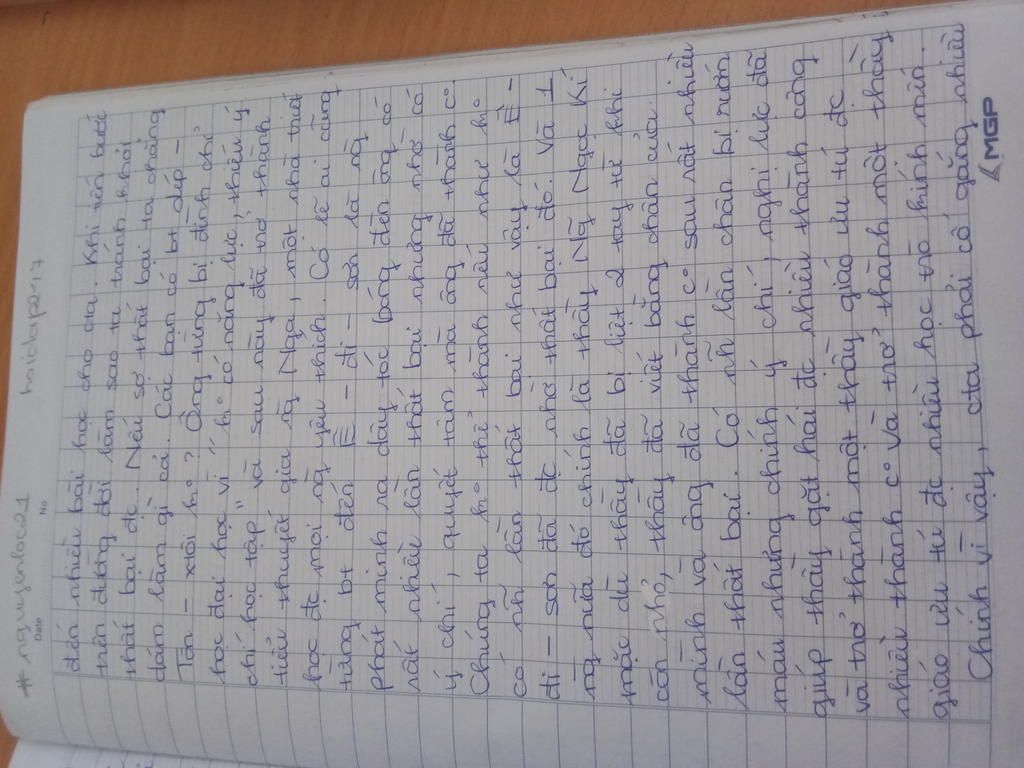 # nguyenloc21 hoidap247
Date No
đến nhiều bài học cho cta. Khi tiến bước
trên đường đời làm sao ta tránh khỏi
thất bại đc. Nếu sợ thất bại ta chẳng
dám làm gì cả. Các bạn có bt dép -
Tôn - xtôi ko? Ông từng bị đình chỉ
học đại học vì "ko có năng lực, thiếu ý
chí học tập" và sau này đã trở thành
tiểu thuyết gia ng Nga, một nhà triết
học đc mọi ng yêu thích. Có lẽ ai cũng
từng bt đến Ê - đi - sơn là ng
phát minh ra dây tóc bóng đèn ông có
rất nhiều lần thất bại nhưng nhờ có
ý chí, quyết tâm mà ông đã thành co
Chúng ta ko thể thành nếu như ko
có nh~ lần thất bại như vậy là Ê -
đi - sơn đã đc nhờ thất bại đó. Và 1
ng nữa đó chính là thầy Ng~ Ngọc Kí
mặc dù thầy đã bị liệt 2 tay từ khi
còn nhỏ, thầy đã viết bằng chân của
mình và ông đã thành co sau rất nhiều
lần thất bại. Có nh~ lần chân bị rướn
máu nhưng chính ý chí, nghị lực đã
giúp thầy gặt hái đc nhiều thành công
và trở thành một thầy giáo ưu tú đc
nhiều thành co và trở thành một thầy
giáo ưu tú đc nhiều học trò kính mến.
Chính vì vậy, cta phải cố gắng nhiều
MGP